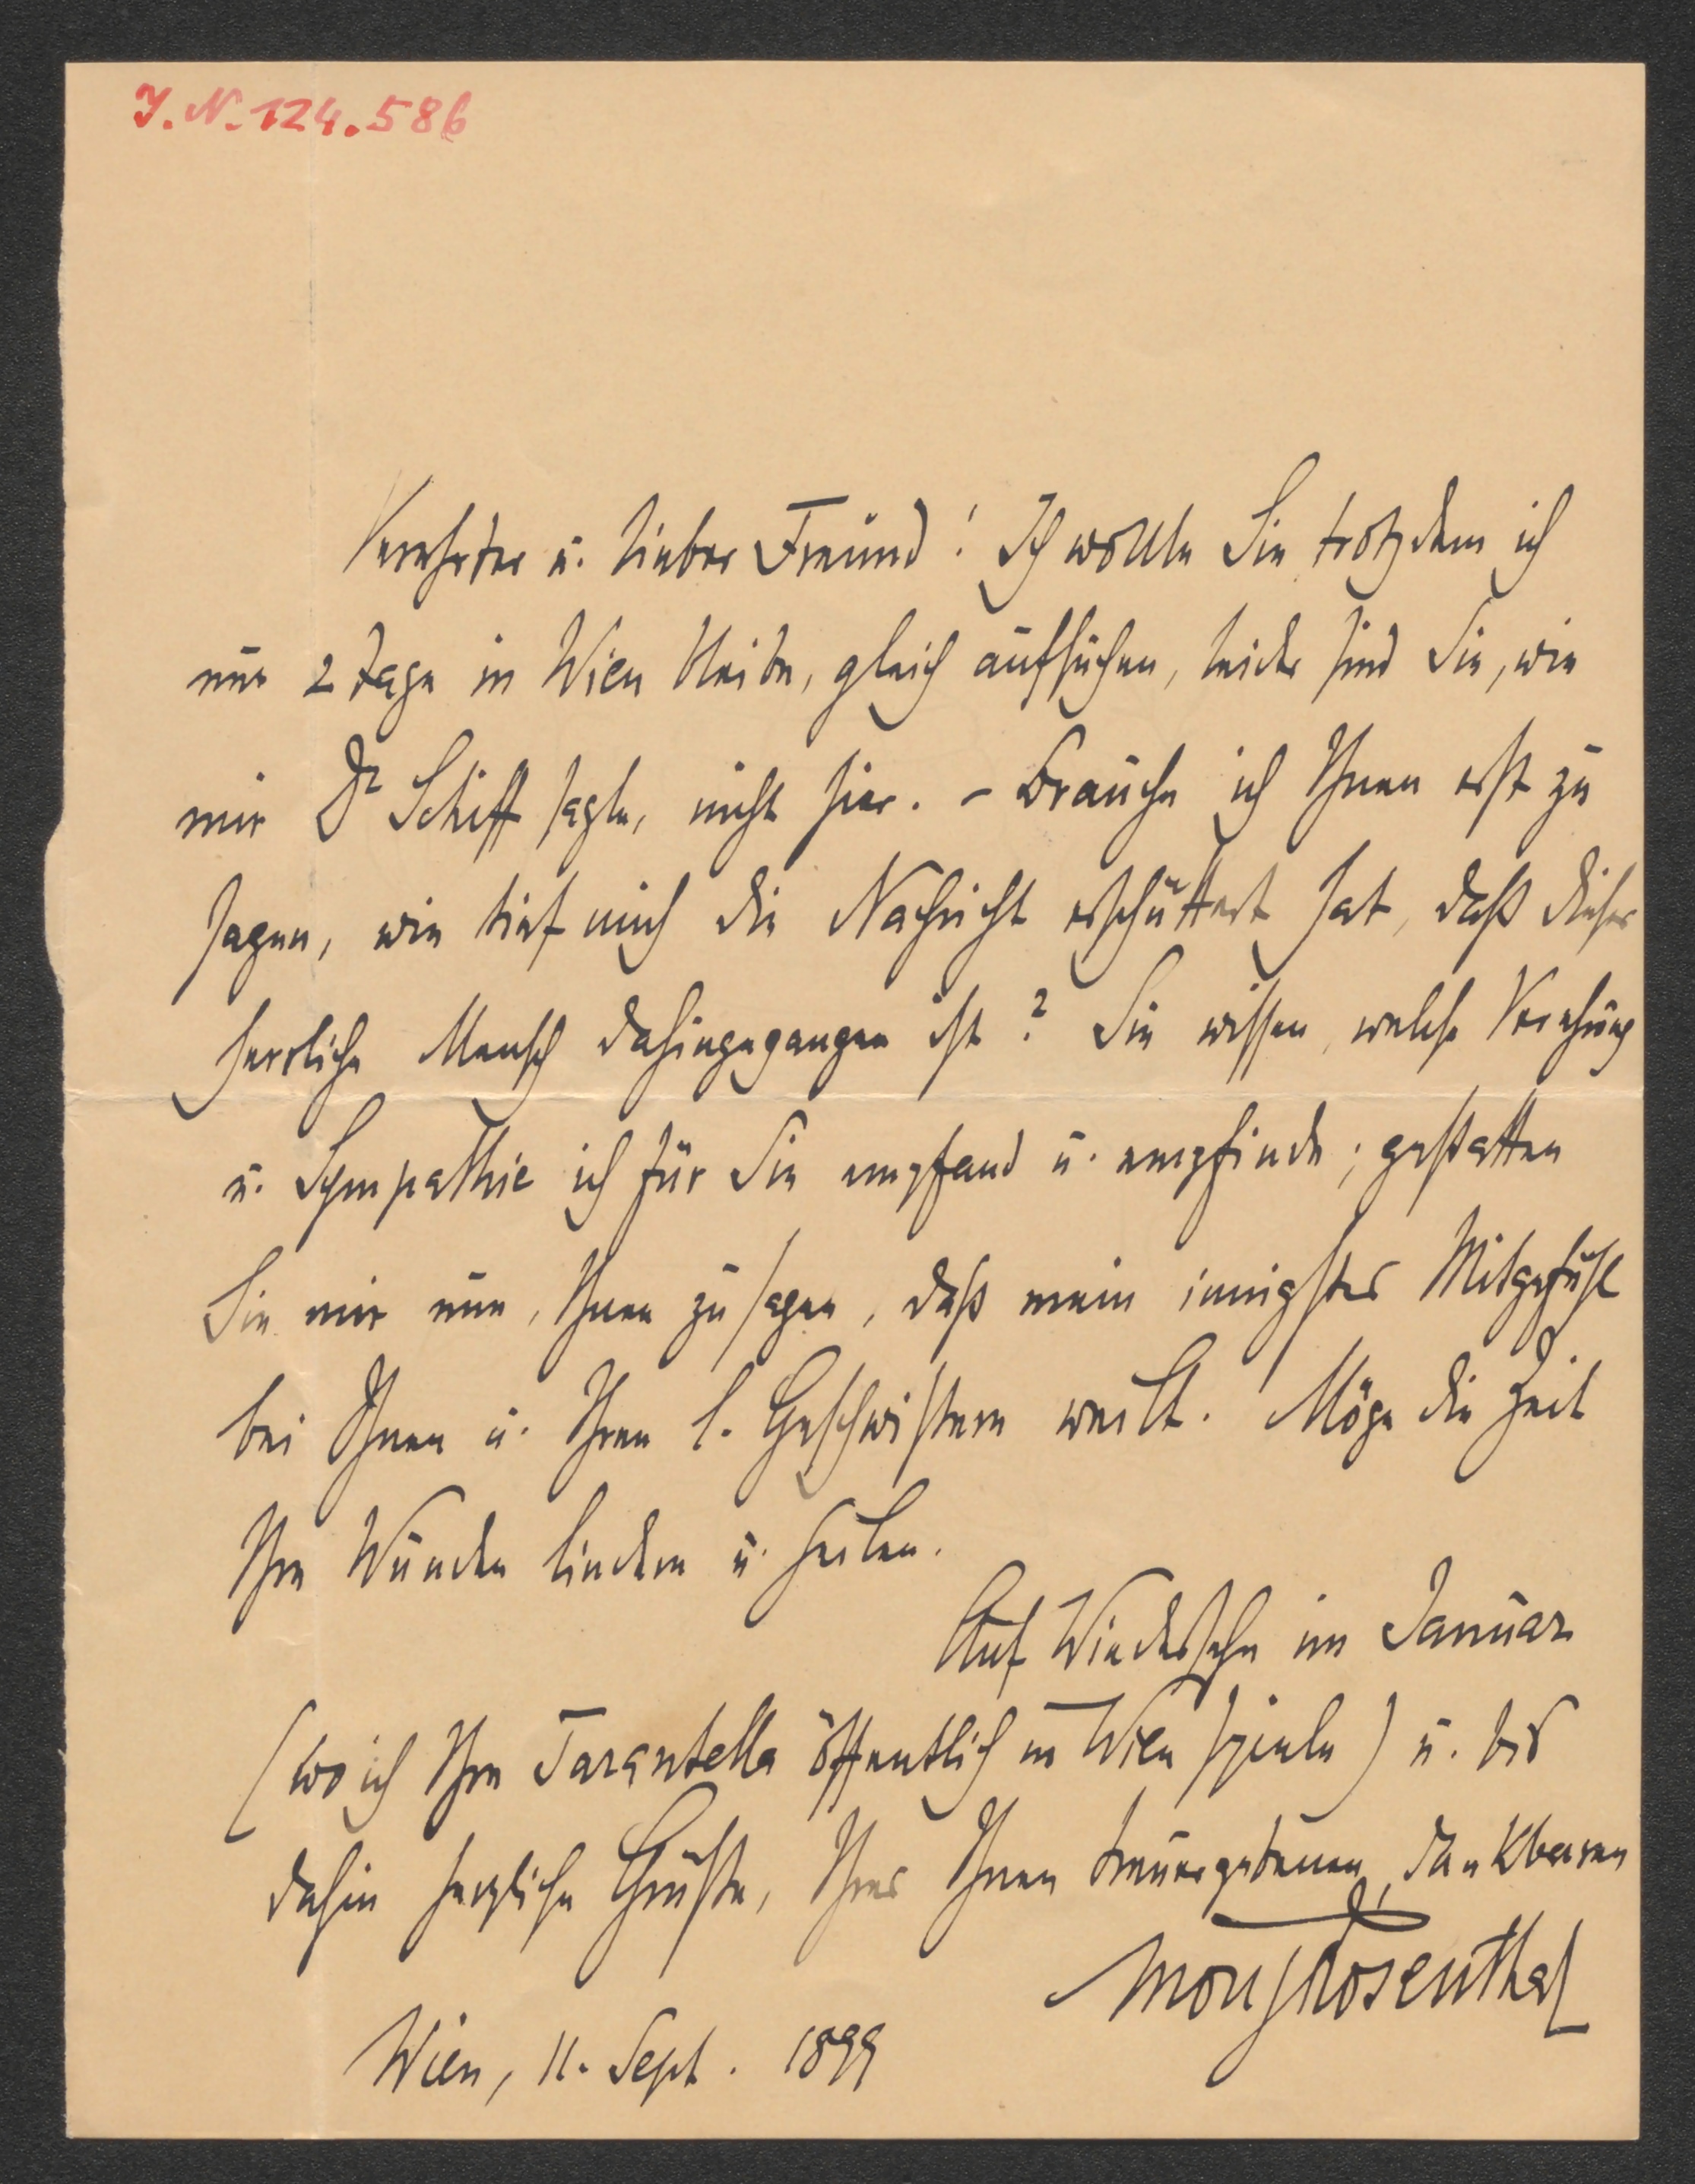 J. N. 124.586
Verehrter u. lieber Freund! Ich wollte Sie trotzdem ich
nur 2 Tage in Wien bleibe, gleich aufsuchen, leider sind Sie, wie
mir Dr Schiff sagte, nicht hier. – Brauche ich Ihnen erst zu
sagen, wie tief mich die Nachricht erschüttert hat, daß dieser
herrliche Mensch dahingegangen ist? Sie wissen, welche Verehrung
u. Sympathie ich für Sie empfand u. empfinde; gestatten
Sie mir nun, Ihnen zu sagen, daß mein innigstes Mitgefühl
bei Ihnen u. Ihren l. Geschwistern weilt. Möge die Zeit
Ihre Wunden lindern u. heilen.
Auf Wiedersehn im Januar
(wo ich Ihre Tarantella öffentlich in Wien spiele) u. bis
dahin herzliche Grüße, Ihres Ihnen treuergebenen, dankbaren
Moriz Rosenthal
Wien, 11. Sept. 1899